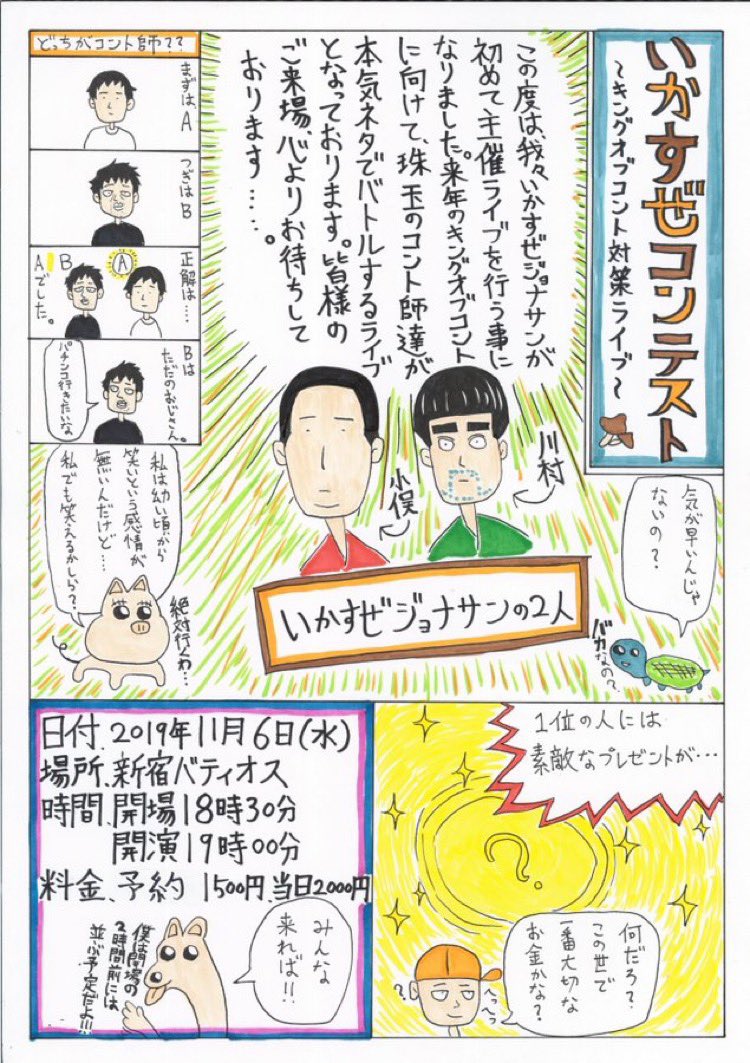 いかすぜコンテスト
～キングオブコント対策ライブ～
この度は、我々いかすぜジョナサンが
初めて主催ライブを行う事に
なりました。来年のキングオブコント
に向けて、珠玉のコント師達が
本気ネタでバトルするライブ
となっております。皆様の
ご来場、心よりお待ちして
おります……。
どっちがコント師??
まずはA
つぎはB
正解は…
A
B
Aでした。
Bは
ただのおじさん。
パチンコ行きたいな
川村
小俣
いかすぜジョナサンの2人
気が早いんじゃ
ないの?
バカなの?
私は幼い頃から
笑いという感情が
無いんだけど…
私でも笑えるかしら?
絶対行くわ…
1位の人には
素敵なプレゼントが…
?
何だろ?
この世で
一番大切な
お金かな?
へっへっ
?
日付、2019年11月6日(水)
場所、新宿バティオス
時間、開場18時30分
開演19時00分
料金、予約 1500円、当日2000円
みんな
来れば!!
僕は開場の
2時間前には
並ぶ予定だよ!!